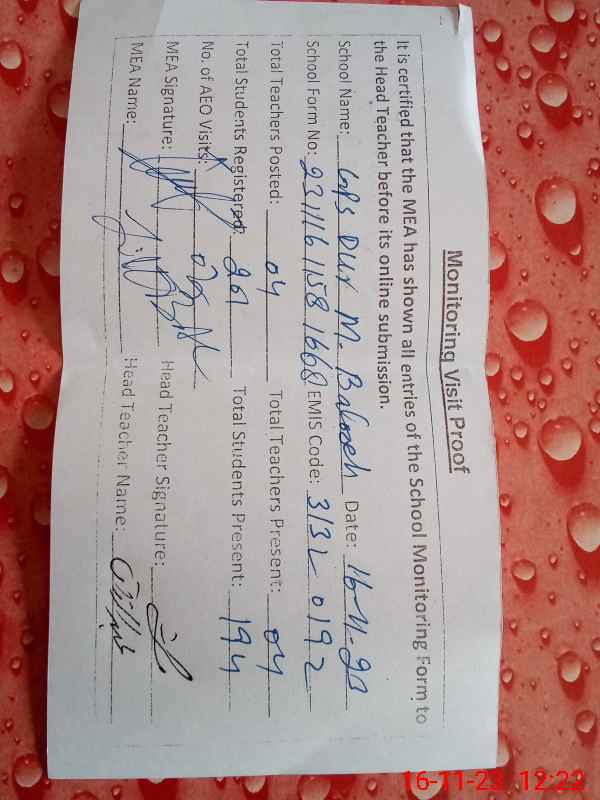 Monitoring Visit Proof
It is certified that the MEA has shown all entries of the School Monitoring Form to
the Head Teacher before its online submission.
School Name: GPS Dur M. Baloch Date: 16-11-23
School Form No: 231116115816 EMIS Code: 31320192
Total Teachers Posted: 04 Total Teachers Present: 04
Total Students Registered: 201 Total Students Present: 194
No. of AEO Visits:
MEA Signature: Head Teacher Signature:
MEA Name: Head Teacher Name:
16-11-23 12:22